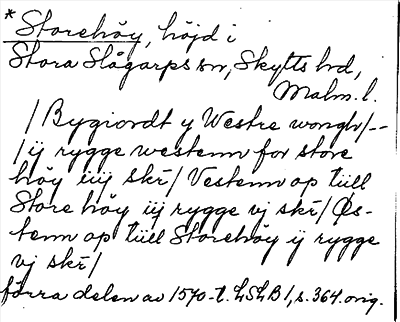 * Storehöy, höjd i
Stora Slågarps sn, Skytts hd,
Malm. l.
/ Bygiordt y Westre wongh/--
/ ij rygge westenn for store
höy iiij skr/ Vestenn op tiill
Store höy iij rygge vj skr/ Øs-
tenn op tiill Storehöy ij rygge
vj skr/
förra delen av 1570-t. LSLB 1, s. 364. orig.